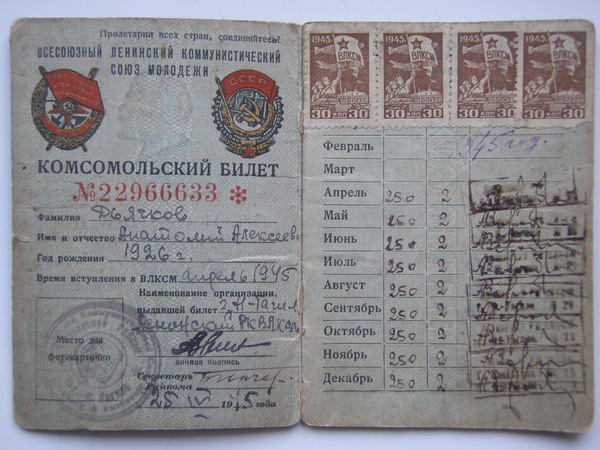 Пролетарии всех стран, соединяйтесь!
ВСЕСОЮЗНЫЙ ЛЕНИНСКИЙ КОММУНИСТИЧЕСКИЙ
СОЮЗ МОЛОДЕЖИ
СССР
КОМСОМОЛЬСКИЙ БИЛЕТ
№22966633 *
Фамилия Дьячков
Имя и отчество Анатолий Алексеев
Год рождения 1926 г.
Время вступления в ВЛКСМ апрель 1945
Наименование организации,
выдавшей билет
Ленинский РК ВЛКСМ
Место для
фотокарточки
личная подпись
Секретарь
Райкома
25 IV 1945 года
1945 ВЛКСМ ШЕФСКАЯ 30 КОП 30
1945 ВЛКСМ ШЕФСКАЯ 30 КОП 30
1945 ВЛКСМ ШЕФСКАЯ 30 КОП 30
1945 ВЛКСМ ШЕФСКАЯ 30 КОП 30
Февраль 1945 год.
Март
Апрель 250 2
Май 250 2
Июнь 250 2
Июль 250 2
Август 250 2
Сентябрь 250 2
Октябрь 250 2
Ноябрь 250 2
Декабрь 250 2